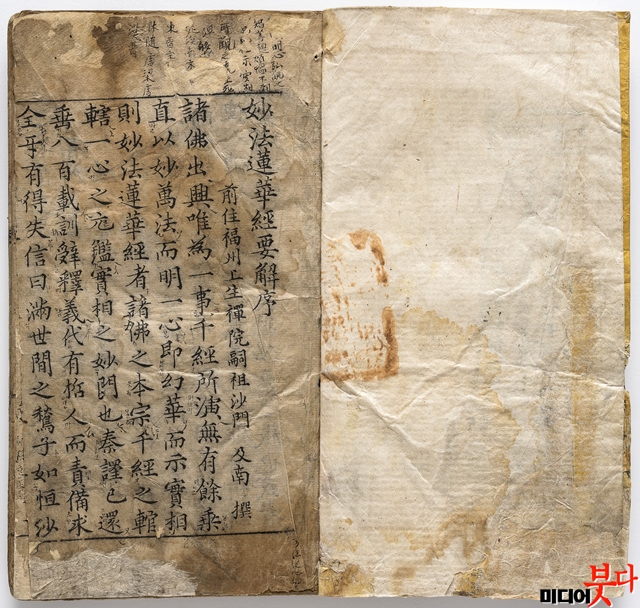 妙法蓮華經要解序
前住福州上生禪院嗣祖沙門 及南 撰
諸佛出興唯為一事千經所演無有餘乘
直以妙萬法而明一心即幻華而示實相
則妙法蓮華經者諸佛之本宗千經之輨
轄一心之元鑑實相之妙門也秦譯已還
垂八百載訓辭釋義代有哲人而責備求
全乎有得失信曰滿世間之鶖子如恒沙
미디어붓다